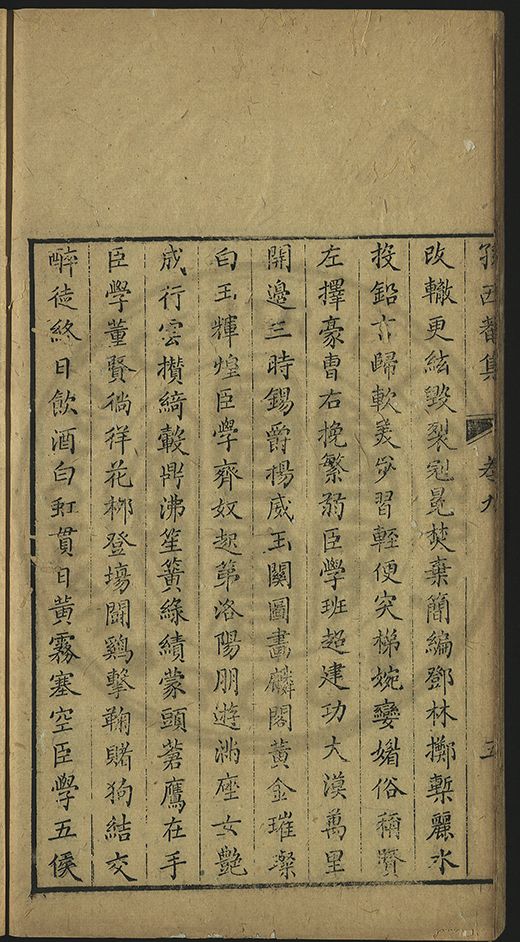 孫西菴集 卷九 五
改轍更絃毀裂冠冕焚棄簡編鄧林擲槧麗水
投鉛言歸軟美少習輕便突梯婉孌媚俗稱賢
左擇豪曹右挽繁弱臣學班超建功大漠萬里
開邊三時錫爵楊威玉關圖畫麟閣黃金璀璨
白玉輝煌臣學齊奴起第洛陽朋遊滿座女艷
成行雲攢綺轂鼎沸笙簧綠績蒙頭蒼鷹在手
臣學董賢徜徉花柳登場鬪鷄擊鞠賭狗結交
醉徒終日飲酒白虹貫日黃霧塞空臣學五侯